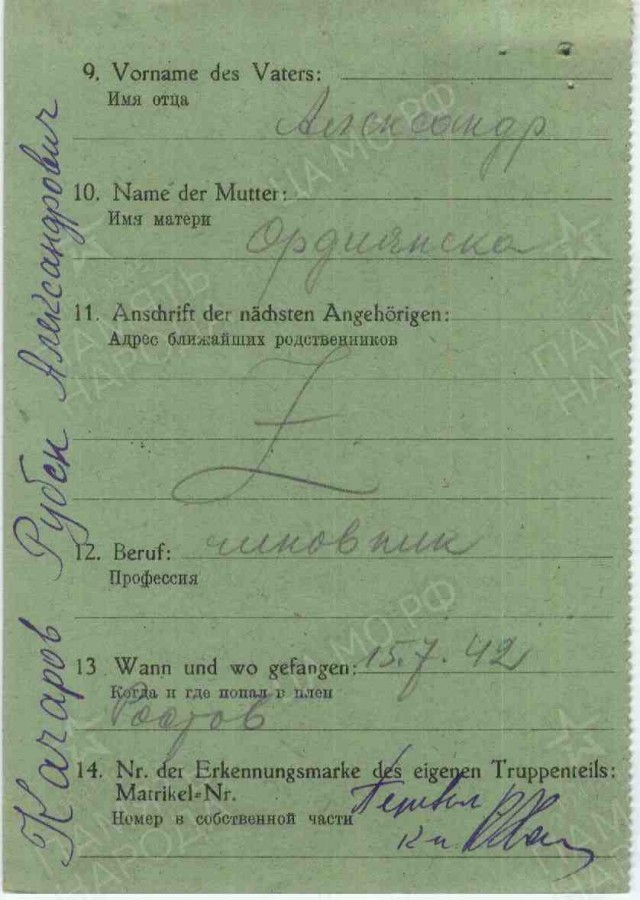 9. Vorname des Vaters:
Имя отца
Александр
10. Name der Mutter:
Имя матери
11. Anschrift der nächsten Angehörigen:
Адрес ближайших родственников
12. Beruf:
Профессия
13 Wann und wo gefangen: 15.7.42
Когда и где попал в плен
Ростов
14. Nr. der Erkennungsmarke des eigenen Truppenteils:
Matrikel=Nr.
Номер в собственной части
Качаров Рубен Александрович
ПАМЯТЬ НАРОДА
ЦА МО РФ